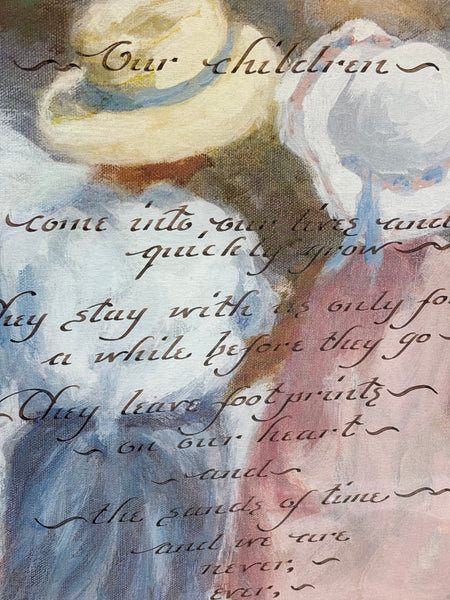 ~ Our children ~
come into our lives and
quickly grow ~
They stay with us only for
a while before they go ~
They leave footprints ~
~ on our heart ~
~ and ~
~ the sands of time ~
and we are
never, ~
ever, ~